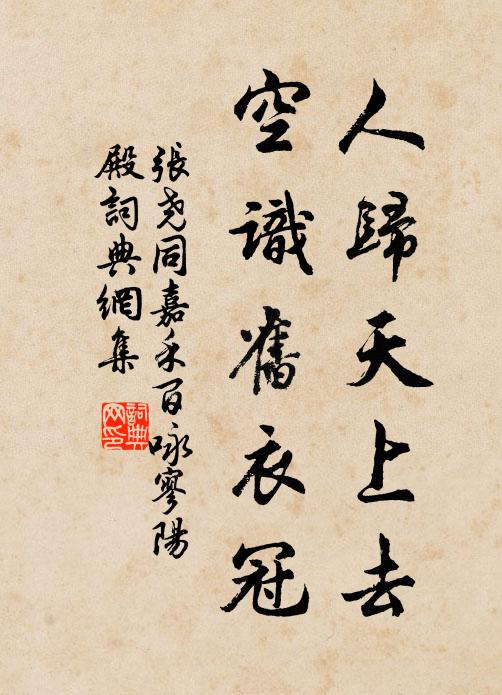 人歸天上去
空識舊衣冠
張堯同嘉禾百咏寥陽
殿詞典網集
詞典
网印